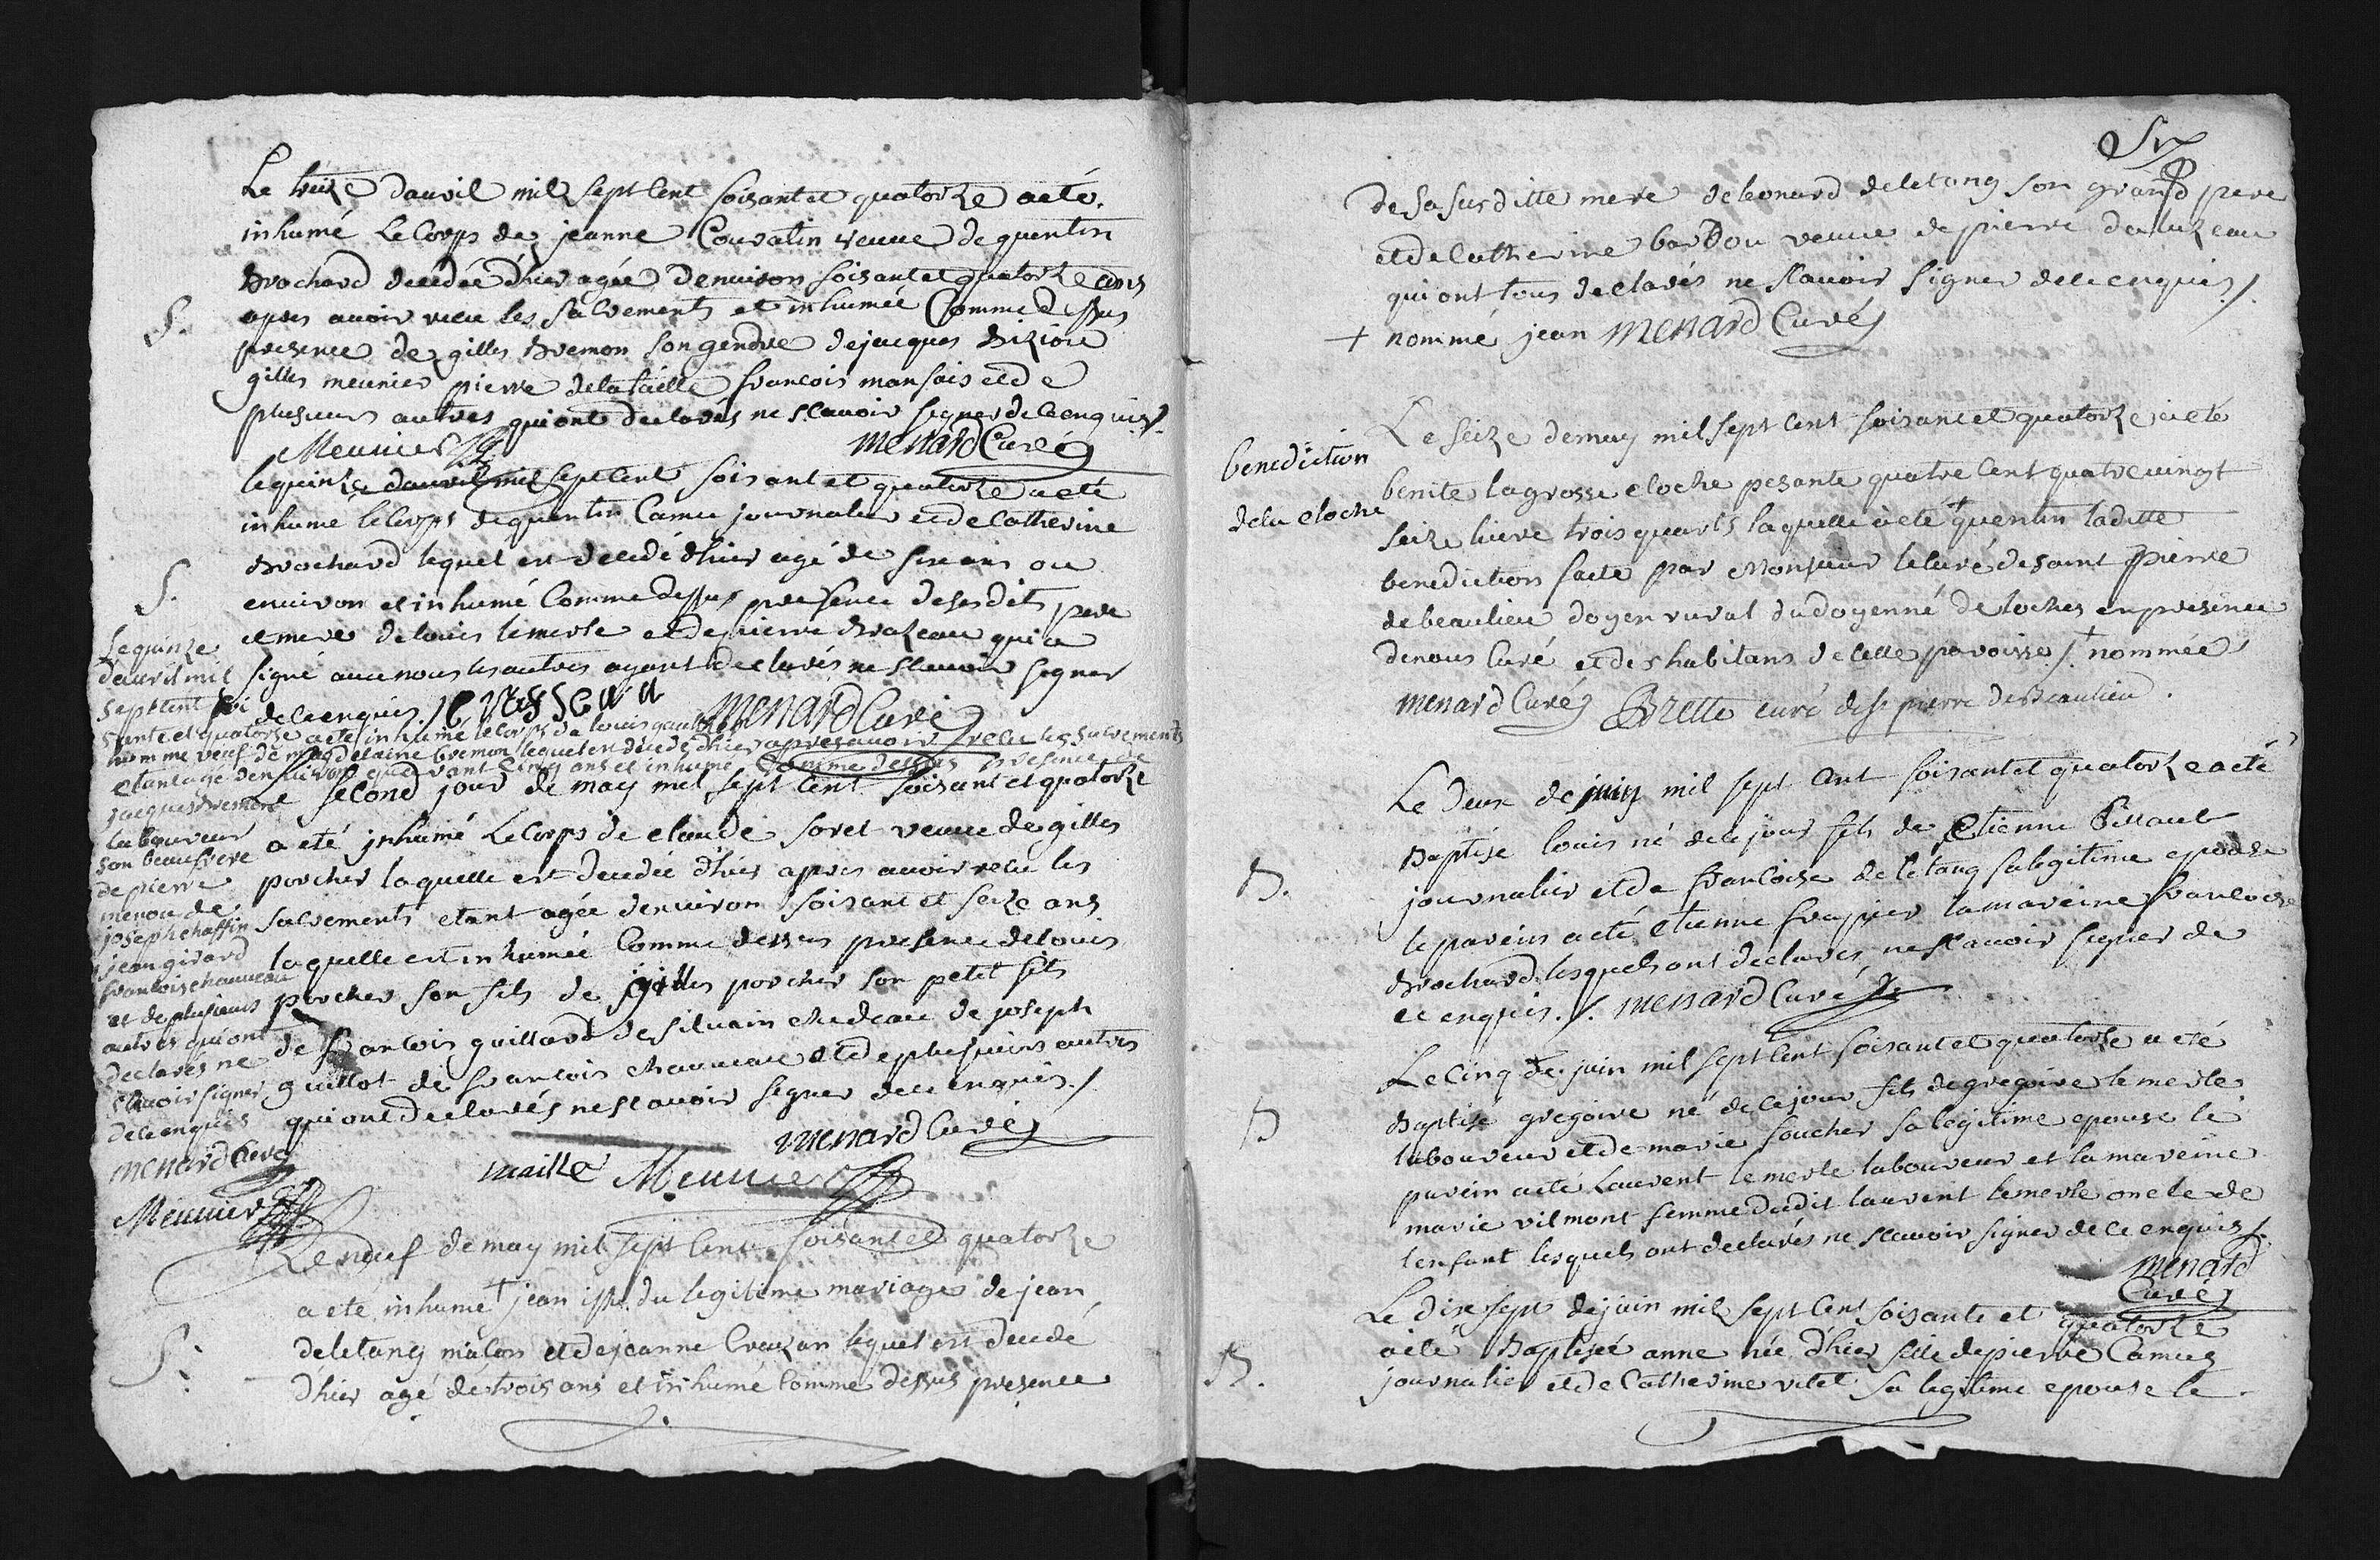 Le treize davril mil sept cent soisant et quatorze a eté
inhumé le corps de jeanne Couratin veuve de quentin
Brochard decedée d'hier agée d'environ soisant et quatorze ans
S.
apres avoir recu les sacrements et inhumée Comme dessus
presence de gilles Bremon son gendre de jacques
gilles meunier pierre delataille francois mansais et de
plusieurs autres qui ont declarés ne scavoir signer de ce enquis /.
Meunier menard Curé
le quinze davril mil sept cent soisant et quatorze a eté
inhume le corps de quentin Camu journalier et de Catherine
Brochard lequel est decedé d'hier agé de six ans ou
S.
environ et inhumé Comme dessus presence de ses dits pere
et mere de louis lemerle et de pierre Brazeau qui a
signé avec nous les autres ayant declarés ne scavoir signer
de ce enquis. menard Curé
le quinze
d'avril mil
sept cent soi
sante et quatorze a eté inhumé le corps de louis
homme veuf de magdelaine bremon lequel est decedé d'hier apres avoir recu les sacrements
etant agé denviron quarant cinq ans et inhumé Comme dessus presence de
jacques bremon
laboureur
son beaufrere
de pierre
menou de
joseph chaffin
jean girard
francois chauveau
et de plusieurs
autres qui ont
declarés ne
scavoir signer
de ce enquis
menard Curé
Meunier
Le second jour de may mil sept cent soisant et quatorze
a eté inhumé le Corps de claude soret veuve de gilles
porcher laquelle est decedée d'hier apres avoir recu les
sacrements etant agée denviron soisant et seize ans
laquelle est inhumée Comme dessus presence de louis
porcher son fils de gilles porcher son petit fils
de francois guillard de silvain chedeau de joseph
guillot de francois chauveau et de plusieurs autres
qui ont declarés ne scavoir signer de ce enquis /.
menard Curé
maille Meunier
Le neuf de may mil sept cent soisant et quatorze
a eté inhumé + jean issu du legitime mariage de jean
S.
deletang maçon et de jeanne Crazan lequel est decedé
d'hier agé de trois ans et inhumé Comme dessus presence
Six
de sa susditte mere de leonard deletang son grand pere
et de Catherine bardou veuve de pierre deluzeau
qui ont tous declarés ne scavoir signer de ce enquis /.
+ nommé jean menard Curé
benediction
de la cloche
Le seize de may mil sept cent soisant et quatorze a eté
benite la grosse cloche pesante quatre cent quatre vingt
seize livre trois quarts laquelle a eté + quentin laditte
benediction faite par Monsieur le curé de saint pierre
de beaulieu doyen rural du doyenné de loches en presence
de nous curé et des habitans de cette paroisse /. + nommée
menard Curé Brette curé de st pierre de Beaulieu.
Le deux de juin mil sept cent soisant et quatorze a eté
Baptisé louis né de ce jour fils de etienne
B.
journalier et de francoise de letang sa legitime epouse
le parein a eté etienne frapier la mareine francoise
Brochard lesquels ont declarés ne scavoir signer de
ce enquis. /. menard Curé
Le Cinq de juin mil sept cent soisant et quatorze a eté
B
Baptisé gregoire né de ce jour fils de gregoire lemerle
laboureur et de marie foucher sa legitime epouse le
parein a eté Laurent lemerle laboureur et la mareine
marie vilmont femme dudit laurent lemerle oncle de
lenfant lesquels ont declarés ne scavoir signer de ce enquis /.
menard
Curé
Le dix sept de juin mil sept cent soisante et quatorze
a eté Baptisée anne née d'hier fille de pierre Camus
B.
journalier et de Catherine vitet sa legitime epouse le